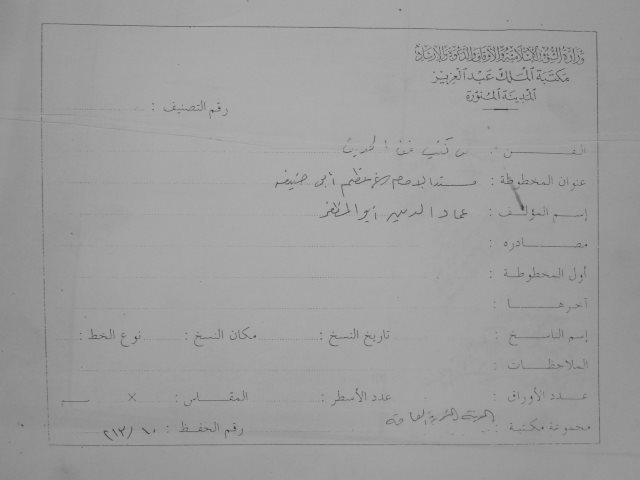 وزارة الشؤون الإسلامية والأوقاف والدعوة والإرشاد
مكتبة الملك عبد العزيز
المدينة المنورة
رقم التصنيف :
الفن : من كتب فن الحديث
عنوان المخطوطة : مسند الامام الاعظم أبي حنيفه
إسم المؤلف : عماد الدين أبو المظفر
مصادره :
أول المخطوطة :
آخرها :
إسم الناسخ : تاريخ النسخ : مكان النسخ : نوع الخط :
الملاحظات :
عدد الأوراق : عدد الأسطر : المقاس : × سم
مجموعة مكتبة : المدينة المنورة العامة رقم الحفظ : ٦٠ / ٢١٣